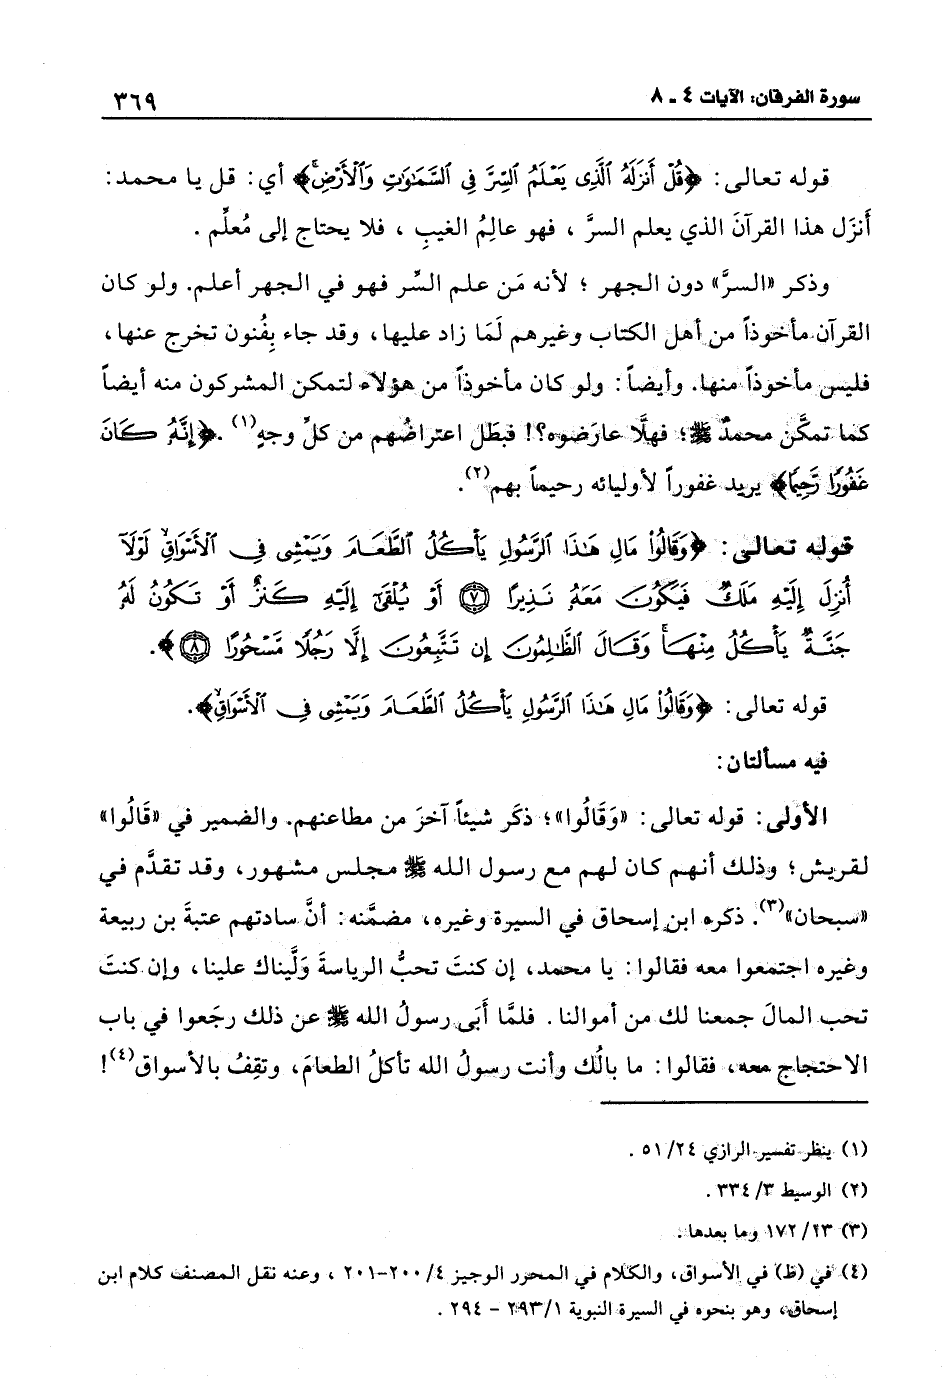 سورة الفرقان: الآيات ٤ ـ ٨
٣٦٩
قوله تعالى: ﴿قُلْ أَنزَلَهُ ٱلَّذِى يَعْلَمُ ٱلسِّرَّ فِى ٱلسَّمَٰوَٰتِ وَٱلْأَرْضِۚ﴾ أي: قل يا محمد:
أَنزَل هذا القرآنَ الذي يعلم السرَّ ، فهو عالِمُ الغيبِ ، فلا يحتاج إلى مُعلِّم .
وذكر «السرَّ» دون الجهر ؛ لأنه مَن علم السِّر فهو في الجهر أعلم. ولو كان
القرآن مأخوذاً من أهل الكتاب وغيرهم لَمَا زاد عليها، وقد جاء بِفُنون تخرج عنها،
فليس مأخوذاً منها. وأيضاً: ولو كان مأخوذاً من هؤلاء لتمكن المشركون منه أيضاً
كما تمكَّن محمدٌ ﷺ؛ فهلَّا عارَضوه؟! فبَطَل اعتراضُهم من كلِّ وجهٍ(١). ﴿إِنَّهُۥ كَانَ
غَفُورًا رَّحِيمًا﴾ يريد غفوراً لأوليائه رحيماً بهم(٢).
قوله تعالى: ﴿وَقَالُوا۟ مَالِ هَٰذَا ٱلرَّسُولِ يَأْكُلُ ٱلطَّعَامَ وَيَمْشِى فِى ٱلْأَسْوَاقِۙ لَوْلَآ
أُنزِلَ إِلَيْهِ مَلَكٌ فَيَكُونَ مَعَهُۥ نَذِيرًا ۝٧ أَوْ يُلْقَىٰٓ إِلَيْهِ كَنزٌ أَوْ تَكُونُ لَهُۥ
جَنَّةٌ يَأْكُلُ مِنْهَاۚ وَقَالَ ٱلظَّٰلِمُونَ إِن تَتَّبِعُونَ إِلَّا رَجُلًا مَّسْحُورًا ۝٨﴾.
قوله تعالى: ﴿وَقَالُوا۟ مَالِ هَٰذَا ٱلرَّسُولِ يَأْكُلُ ٱلطَّعَامَ وَيَمْشِى فِى ٱلْأَسْوَاقِۙ﴾.
فيه مسألتان:
الأولى: قوله تعالى: «وَقَالُوا»؛ ذكَر شيئاً آخرَ من مطاعنهم. والضمير في «قَالُوا»
لقريش؛ وذلك أنهم كان لهم مع رسول الله ﷺ مجلس مشهور، وقد تقدَّم في
«سبحان»(٣). ذكره ابن إسحاق في السيرة وغيره، مضمَّنه: أنَّ سادتهم عتبةَ بن ربيعة
وغيره اجتمعوا معه فقالوا: يا محمد، إن كنتَ تحبُّ الرياسةَ وَلَّيناك علينا، وإن كنتَ
تحب المالَ جمعنا لك من أموالنا. فلمَّا أَبَى رسولُ الله ﷺ عن ذلك رجَعوا في باب
الاحتجاج معه، فقالوا: ما بالُك وأنت رسولُ الله تأكلُ الطعامَ، وتقِفُ بالأسواق(٤)!
(١) ينظر تفسير الرازي ٢٤/ ٥١ .
(٢) الوسيط ٣/ ٣٣٤ .
(٣) ٢٣/ ١٧٢ وما بعدها .
(٤) في (ظ) في الأسواق، والكلام في المحرر الوجيز ٤/ ٢٠٠-٢٠١ ، وعنه نقل المصنف كلام ابن
إسحاق، وهو بنحوه في السيرة النبوية ١/ ٢٩٣ - ٢٩٤ .